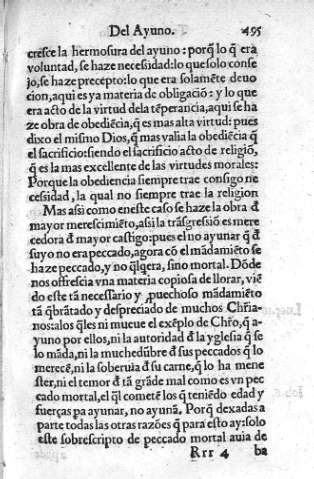 Del Ayuno. 495
cresce la hermosura del ayuno: porq̃ lo q̃ era
voluntad, se haze necessidad: lo que solo conse
jo, se haze precepto: lo que era solamẽte deuo
cion, aqui es ya materia de obligaciõ: y lo que
era acto de la virtud dela tẽperancia, aqui se ha
ze obra de obediẽcia, q̃ es mas alta virtud: pues
dixo el mismo Dios, q̃ mas valia la obediẽcia q̃
el sacrificio: siendo el sacrificio acto de religiõ,
q̃ es la mas excellente de las virtudes morales:
Porque la obediencia siempre trae consigo ne
cessidad, la qual no siempre trae la religion
Mas assi como eneste caso se haze la obra đ
mayor merescimiẽto, assi la trãsgressiõ es mere
cedora đ mayor castigo: pues el no ayunar q̃ đ
suyo no era peccado, agora cõ el mãdamiẽto se
haze peccado, y no q̃lq̃era, sino mortal. Dõde
nos offrescia vna materia copiosa de llorar, viẽ
do este tã necessario y ꝓuechoso mãdamiẽto
tã q̃brãtado y despreciado de muchos Chr̃ia-
nos: a los q̃les ni mueue el exẽplo de Chr̃o, q̃ a-
yuno por ellos, ni la autoridad đ la yglesia q̃ se
lo mãda, ni la muchedũbre đ sus peccados q̃ lo
merecẽ, ni la soberuia đ su carne, q̃ lo ha mene
ster, ni el temor đ tã grãde mal como es vn pec
cado mortal, el q̃l cometẽ los q̃ teniẽdo edad y
fuerças pa ayunar, no ayunã. Porq̃ dexadas a
parte todas las otras razões q̃ para esto ay: solo
este sobrescripto de peccado mortal auia de
Rrr 4 ba